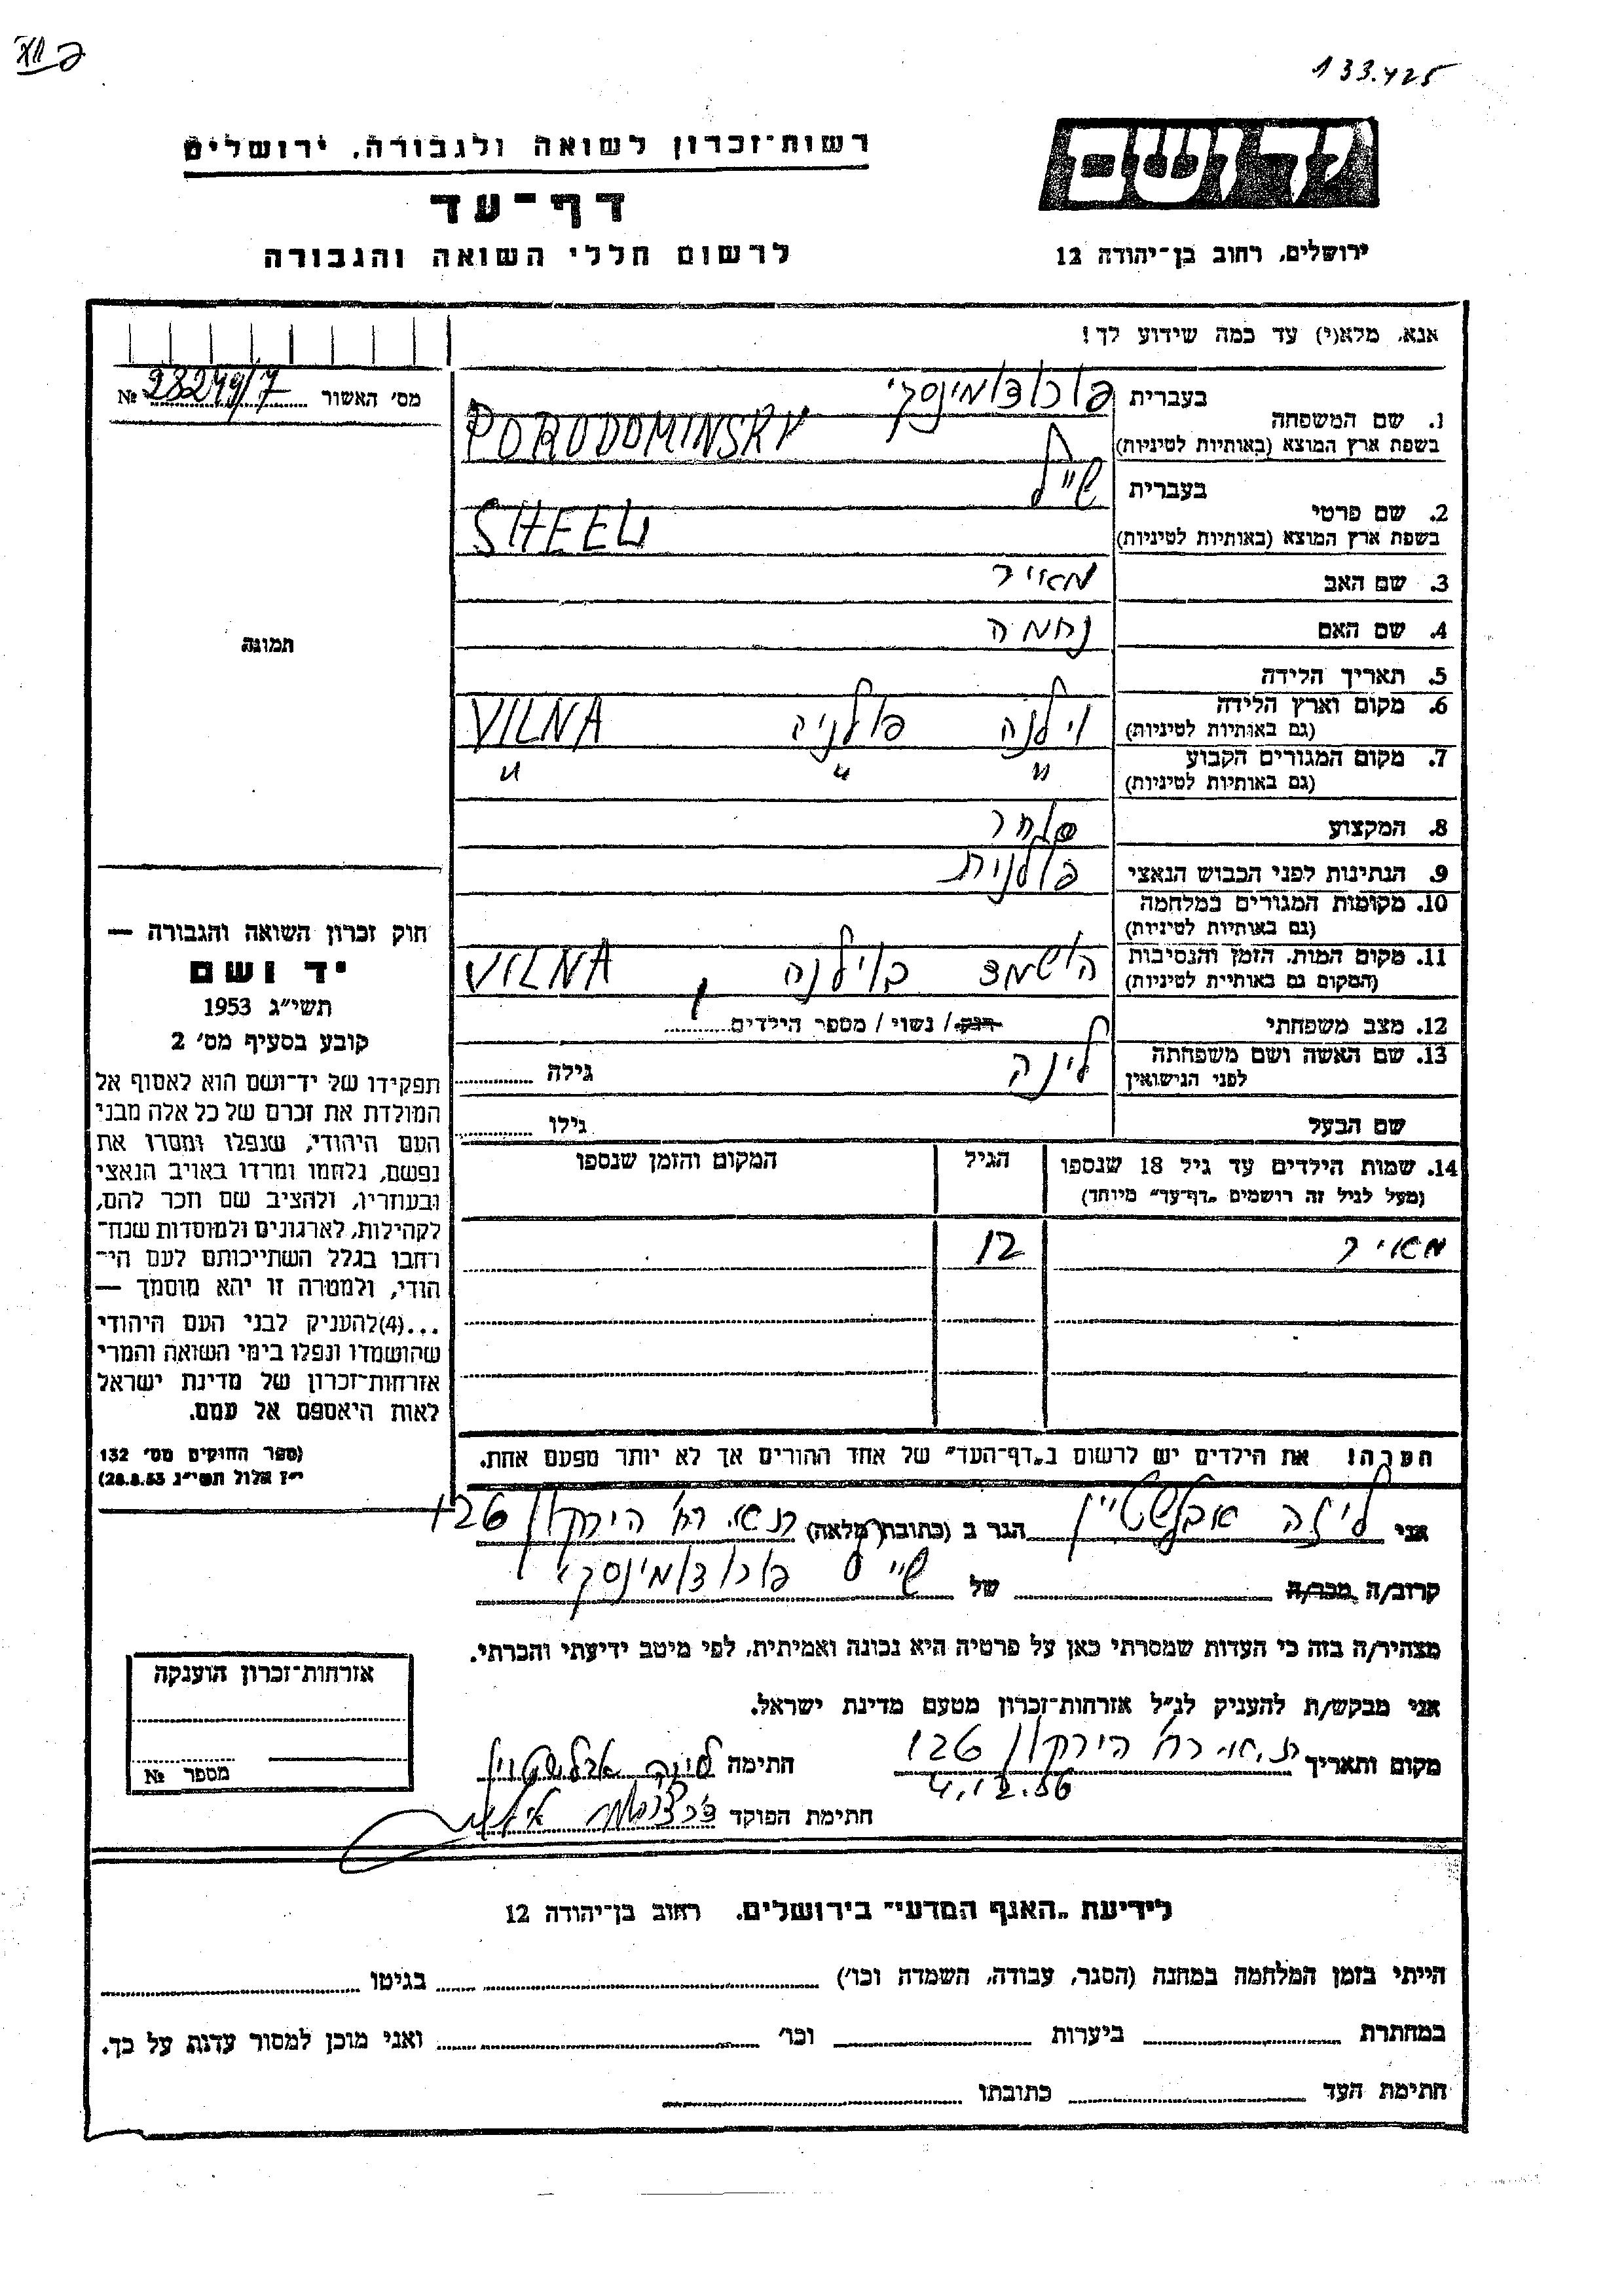 133.425
רשות־זכרון לשואה ולגבורה, ירושלים
יד ושם
דף־עד
לרשום חללי השואה והגבורה
ירושלים, רחוב בן־יהודה 12
אנא, מלא(י) עד כמה שידוע לך!
מס' האשור № 28249/7
1. שם המשפחה בעברית פורודומינסקי
בשפת ארץ המוצא (באותיות לטיניות) PORODOMINSKY
2. שם פרטי בעברית שייל
בשפת ארץ המוצא (באותיות לטיניות) SHEEL
3. שם האב מאיר
4. שם האם נחמה
תמונה
5. תאריך הלידה
6. מקום וארץ הלידה (גם באותיות לטיניות) וילנה פולניה VILNA
7. מקום המגורים הקבוע (גם באותיות לטיניות) " " "
8. המקצוע סוחר
9. הנתינות לפני הכבוש הנאצי פולנית
10. מקומות המגורים במלחמה (גם באותיות לטיניות)
11. מקום המות, הזמן והנסיבות (המקום גם באותיות לטיניות) הושמד בוילנה, VILNA
12. מצב משפחתי רוק / נשוי / מספר הילדים
13. שם האשה ושם משפחתה לפני הנישואין לינה גילה
שם הבעל גילו
14. שמות הילדים עד גיל 18 שנספו הגיל המקום והזמן שנספו
(מעל לגיל זה רושמים „דף־עד" מיוחד)
מאיר 12
הערה! את הילדים יש לרשום ב„דף־העד" של אחד ההורים אך לא יותר מפעם אחת.
חוק זכרון השואה והגבורה —
יד ושם
תשי"ג 1953
קובע בסעיף מס' 2
תפקידו של יד־ושם הוא לאסוף אל
המולדת את זכרם של כל אלה מבני
העם היהודי, שנפלו ומסרו את
נפשם, נלחמו ומרדו באויב הנאצי
ובעוזריו, ולהציב שם וזכר להם,
לקהילות, לארגונים ולמוסדות שנח־
רחבו בגלל השתייכותם לעם הי־
הודי, ולמטרה זו יהא מוסמך —
...(4)להעניק לבני העם היהודי
שהושמדו ונפלו בימי השואה והמרי
אזרחות־זכרון של מדינת ישראל
לאות היאספם אל עמם.
(ספר החוקים מס' 132
י"ז אלול תשי"ג 28.8.53)
אני ליזה אבלשטיין הגר ב (כתובת מלאה) ת.א. רח' הירקון 126
קרוב/ה מכר/ה של שייל פורודומינסקי
מצהיר/ה בזה כי העדות שמסרתי כאן על פרטיה היא נכונה ואמיתית, לפי מיטב ידיעתי והכרתי.
אני מבקש/ת להעניק לנ"ל אזרחות־זכרון מטעם מדינת ישראל.
מקום ותאריך ת.א. רח' הירקון 126 חתימה
4.12.56
חתימת הפוקד
אזרחות־זכרון הוענקה
מספר №
לידיעת „האגף המדעי" בירושלים, רחוב בן־יהודה 12
הייתי בזמן המלחמה במחנה (הסגר, עבודה, השמדה וכו') בגיטו
במחתרת ביערות וכו' ואני מוכן למסור עדות על כך.
חתימת העד כתובתו